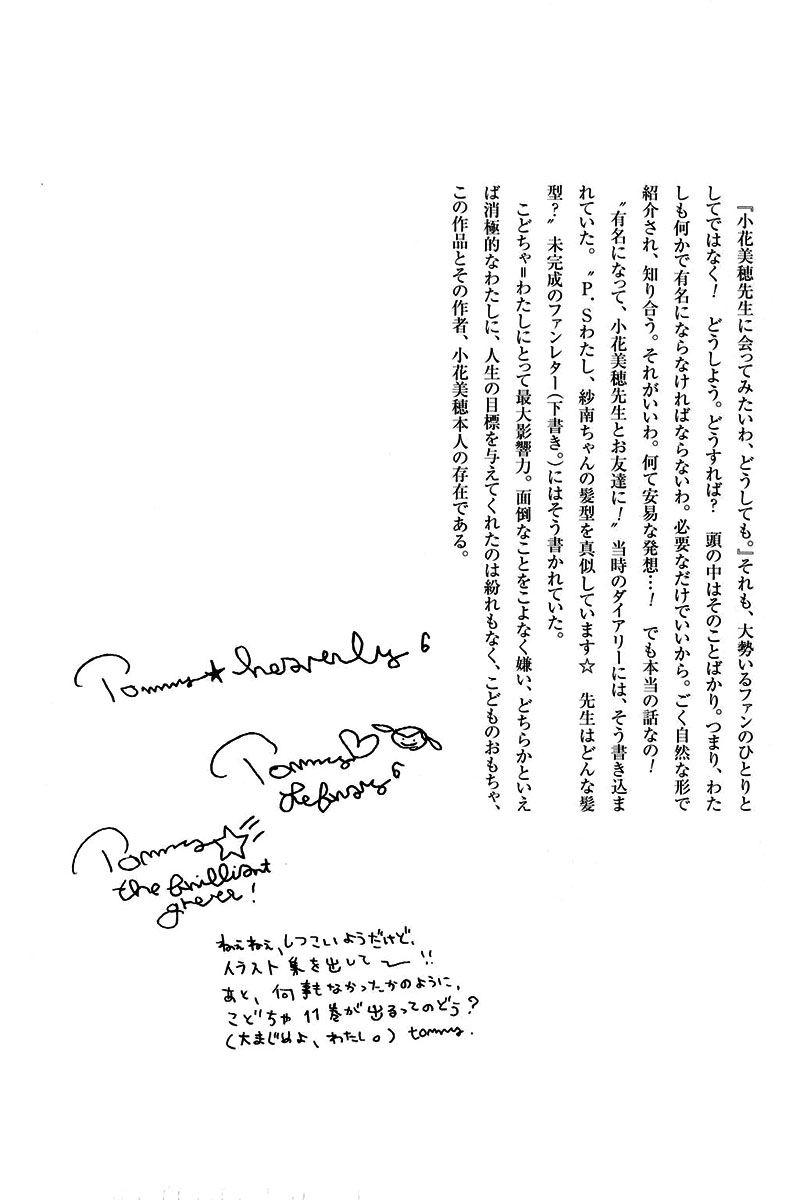 『小花美穂先生に会ってみたいわ、どうしても。』それも、大勢いるファンのひとりと
してではなく！　どうしよう。どうすれば？　頭の中はそのことばかり。つまり、わた
しも何かで有名にならなければならないわ。必要なだけでいいから。ごく自然な形で
紹介され、知り合う。それがいいわ。何て安易な発想…！　でも本当の話なの！
　〝有名になって、小花美穂先生とお友達に！〟当時のダイアリーには、そう書き込ま
れていた。〝P.Sわたし、紗南ちゃんの髪型を真似しています☆　先生はどんな髪
型？〟未完成のファンレター（下書き。）にはそう書かれていた。
　こどちゃ＝わたしにとって最大影響力。面倒なことをこよなく嫌い、どちらかといえ
ば消極的なわたしに、人生の目標を与えてくれたのは紛れもなく、こどものおもちゃ、
この作品とその作者、小花美穂本人の存在である。
Tommy★heavenly6
Tommy♡
february6
Tommy☆
the brilliant
green!
ねぇねぇ、しつこいようだけど、
イラスト集を出して〜!!
あと、何事もなかったかのように、
こどちゃ11巻が出るってのどう？
（大まじめよ、わたし。）tommy.